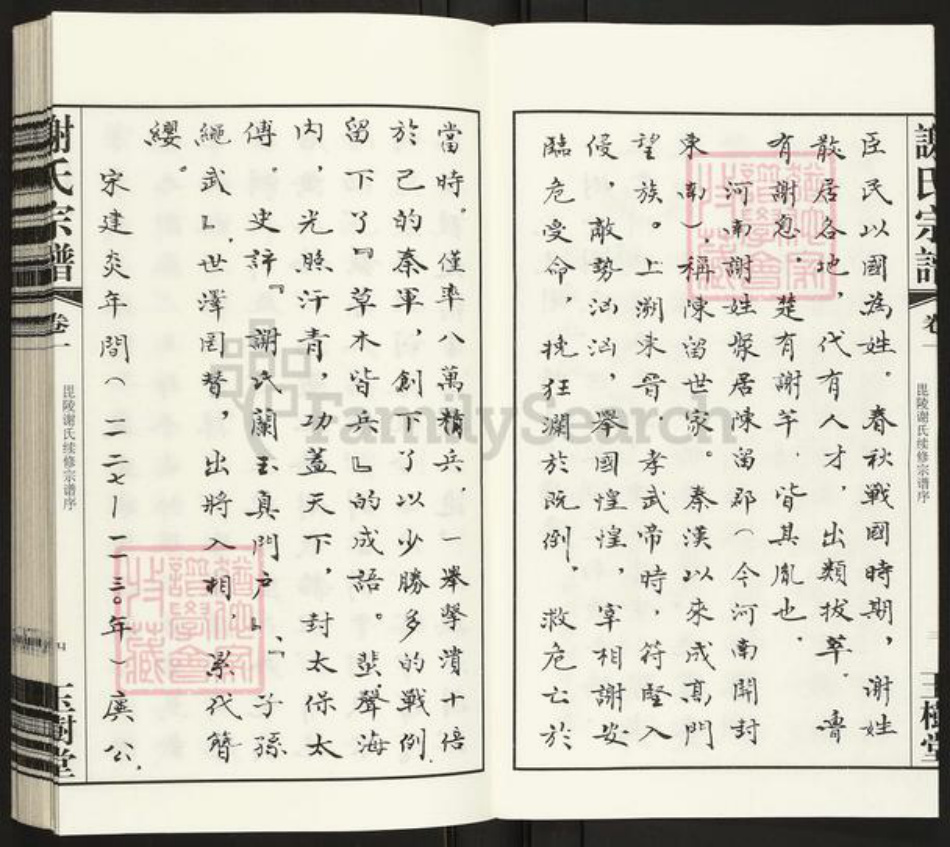 謝氏宗譜
卷一
毘陵谢氏续修宗谱序
玉樹堂
臣民以國為姓。春秋戰國時期，謝姓
散居各地，代有人才，出類拔萃。魯
有謝息，楚有謝芊，皆其胤也。
河南謝姓聚居陳留郡（今河南開封
東南），稱陳留世家。秦漢以來成高門
望族。上溯東晉，孝武帝時，符堅入
侵，敵勢汹汹，舉國惶惶，宰相謝安
臨危受命，挽狂瀾於既倒，救危亡於
當時。僅率八萬精兵，一舉擊潰十倍
於己的秦軍，創下了以少勝多的戰例，
留下了『草木皆兵』的成語。蜚聲海
内，光照汗青，功蓋天下，封太保太
傅。史評『謝氏蘭玉真門户』，「子孫
繩武」，世澤罔替，出將入相，累代簪
纓。
宋建炎年間（一一二七—一一三〇年）廣公，
謝氏宗譜
卷一
毘陵谢氏续修宗谱序
四
玉樹堂
猶他家
譜學會
收藏
猶他家
譜學會
收藏
FamilySearch